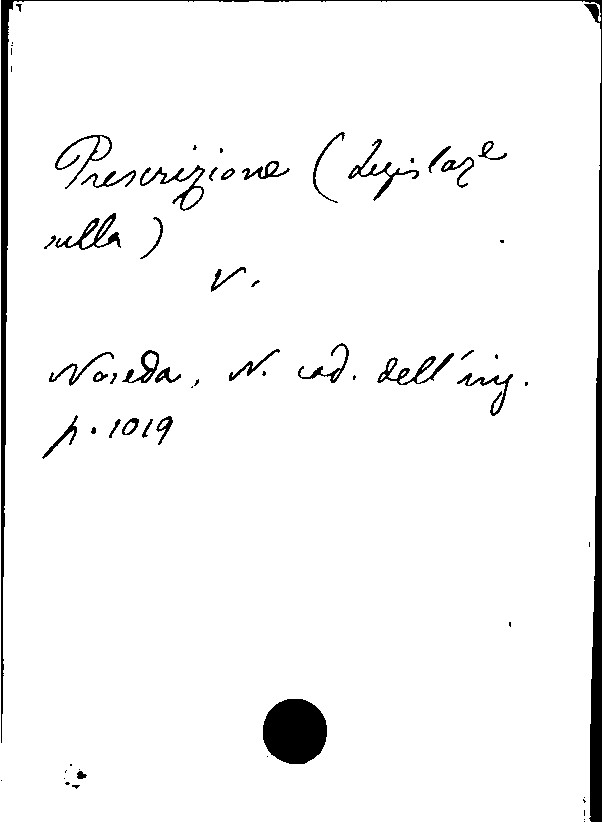 Prescrizione (Legislaz.e
sulla)
V.
Noseda, N. cod. dell'ing.
p. 1019